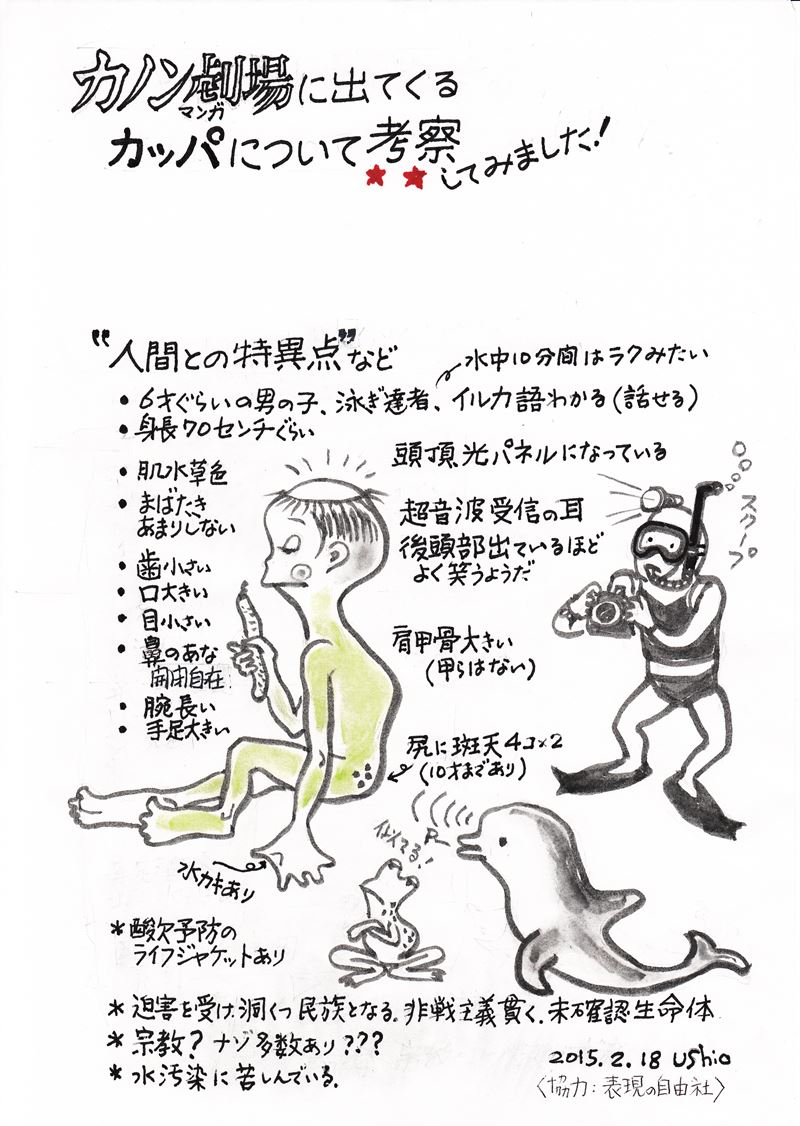 カノン劇場に出てくる
マンガ
カッパについて考察
してみました!
"人間との特異点"など
水中10分間はラクみたい
• 6才ぐらいの男の子、泳ぎ達者、イルカ語わかる(話せる)
• 身長70センチぐらい
• 肌水草色
• まばたき
あまりしない
• 歯小さい
• 口大きい
• 目小さい
• 鼻のあな
開閉自在
• 腕長い
• 手足大きい
頭頂光パネルになっている
超音波受信の耳
後頭部出ているほど
よく笑うようだ
肩甲骨大きい
(甲らはない)
尻に斑天4コ×2
(10才まであり)
スクープ
水カキあり
* 酸欠予防の
ライフジャケットあり
* 迫害を受け、洞くつ民族となる。非戦主義貫く、未確認生命体
* 宗教?ナゾ多数あり???
* 水汚染に苦しんでいる。
2015.2.18 Ushio
〈協力:表現の自由社〉